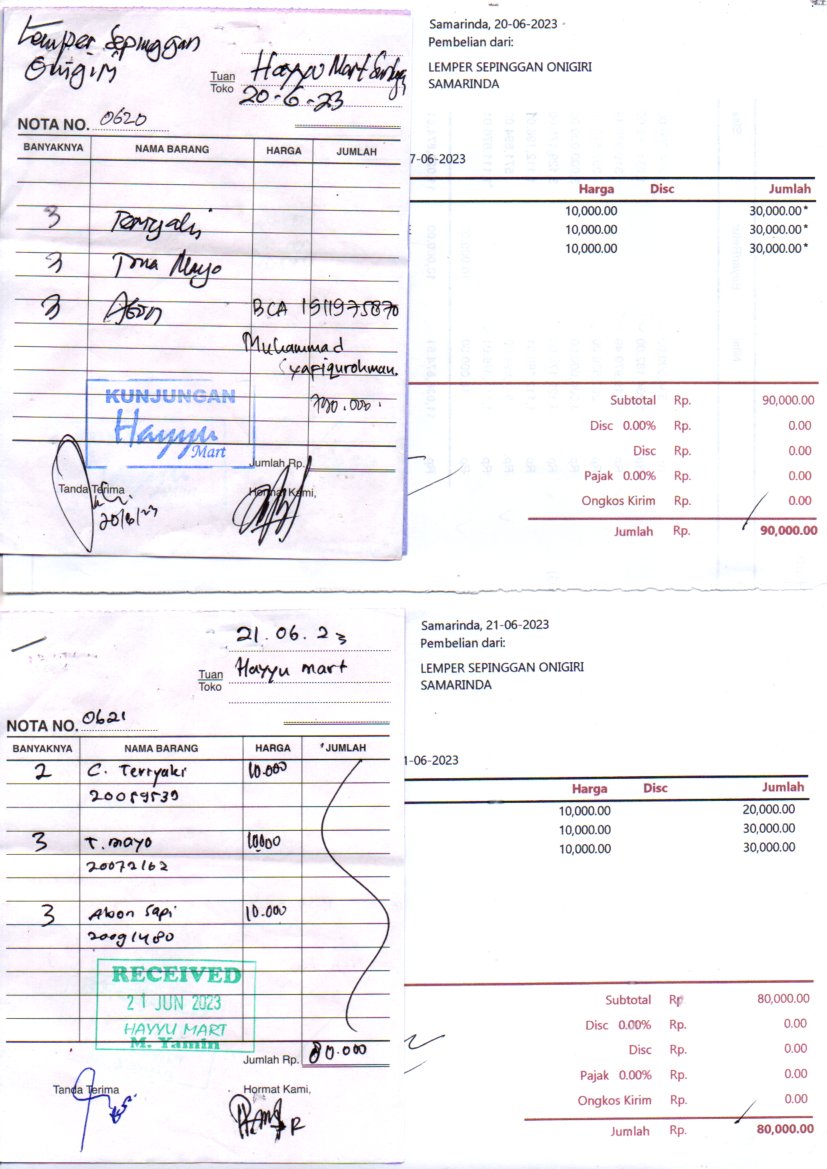 Lemper Sepinggan
Onigiri
Tuan
Toko
Hayyu Mart
20-6-23
NOTA NO. 0620
BANYAKNYA NAMA BARANG HARGA JUMLAH
3 Terryaki
3 Tuna Mayo
3 Abon BCA 1911975870
Muhammad
Syafiqurohman
KUNJUNGAN
Hayyu
Mart
Jumlah Rp.
Tanda Terima Hormat Kami,
20/6/23
Samarinda, 20-06-2023
Pembelian dari:
LEMPER SEPINGGAN ONIGIRI
SAMARINDA
7-06-2023
Harga Disc Jumlah
10,000.00 30,000.00*
10,000.00 30,000.00*
10,000.00 30,000.00*
Subtotal Rp. 90,000.00
Disc 0.00% Rp. 0.00
Disc Rp. 0.00
Pajak 0.00% Rp. 0.00
Ongkos Kirim Rp. 0.00
Jumlah Rp. 90,000.00
21.06.23
Tuan
Toko
Hayyu mart
NOTA NO. 0621
BANYAKNYA NAMA BARANG HARGA JUMLAH
2 C. Terryaki 10.000
20059539
3 T. mayo 10000
20072162
3 Abon Sapi 10.000
20091480
RECEIVED
21 JUN 2023
HAYYU MART
M. Yamin
Jumlah Rp. 80.000
Tanda Terima Hormat Kami,
Samarinda, 21-06-2023
Pembelian dari:
LEMPER SEPINGGAN ONIGIRI
SAMARINDA
1-06-2023
Harga Disc Jumlah
10,000.00 20,000.00
10,000.00 30,000.00
10,000.00 30,000.00
Subtotal Rp 80,000.00
Disc 0.00% Rp. 0.00
Disc Rp. 0.00
Pajak 0.00% Rp. 0.00
Ongkos Kirim Rp. 0.00
Jumlah Rp. 80,000.00